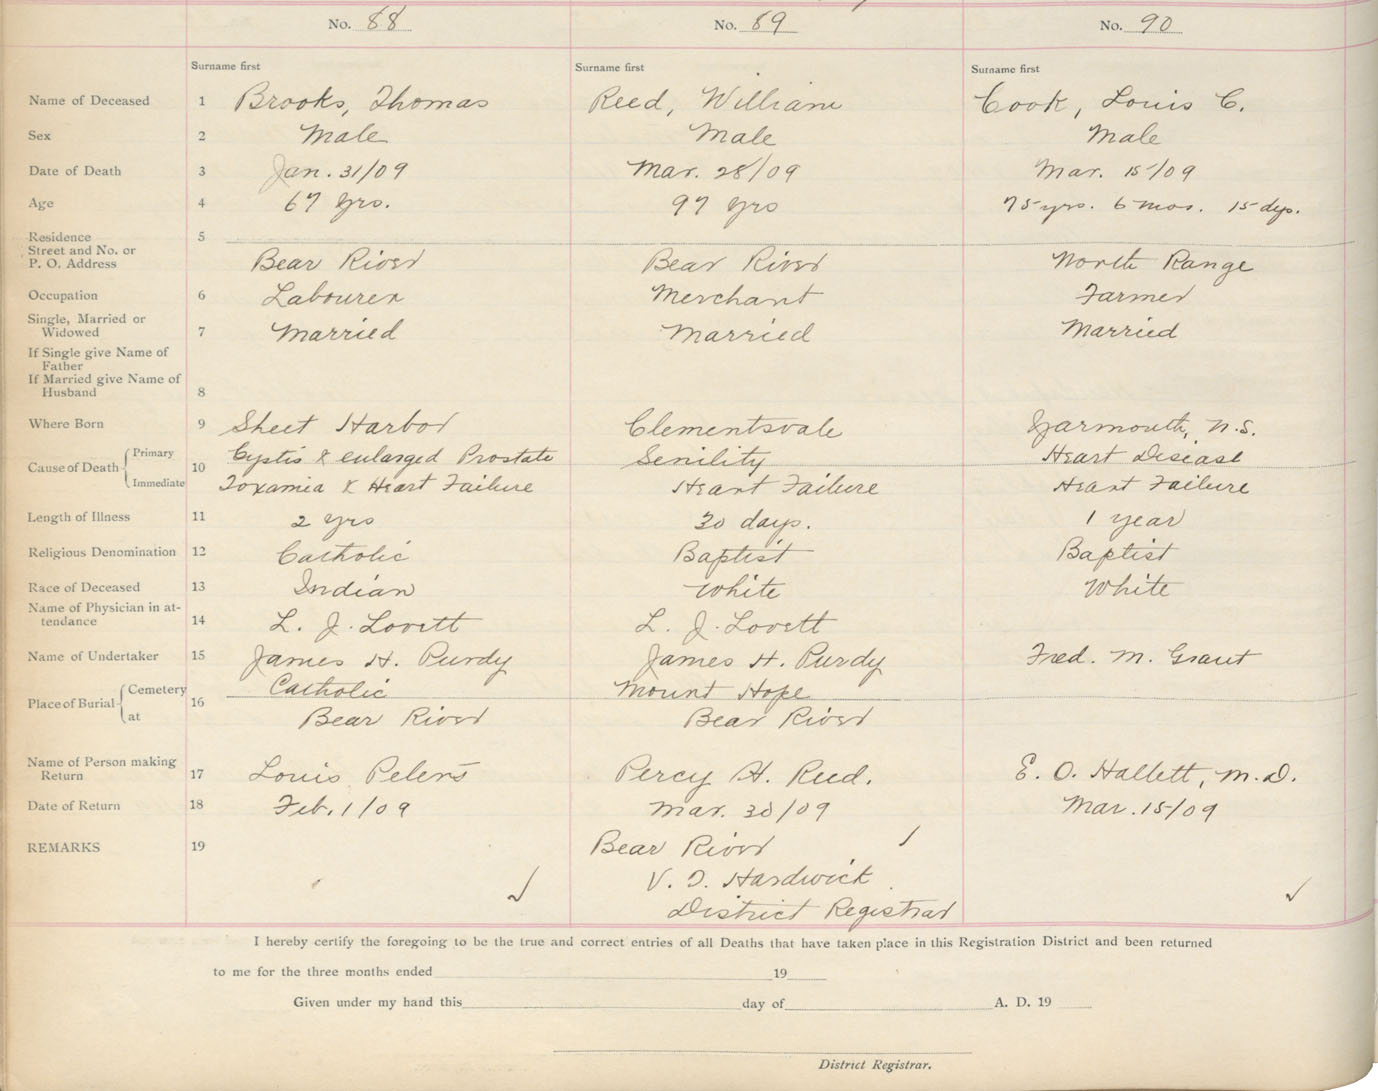 No. 88 No. 89 No. 90
Surname first Surname first Surname first
Name of Deceased 1 Brooks, Thomas Reed, William Cook, Louis C.
Sex 2 Male Male Male
Date of Death 3 Jan. 31/09 Mar. 28/09 Mar. 15/09
Age 4 67 yrs. 97 yrs 75 yrs. 6 mos. 15 dys.
Residence 5
Street and No. or
P. O. Address Bear River Bear River North Range
Occupation 6 Labourer Merchant Farmer
Single, Married or
Widowed 7 Married Married Married
If Single give Name of
Father
If Married give Name of
Husband 8
Where Born 9 Sheet Harbor Clementsvale Yarmouth, N.S.
Cause of Death Primary 10 Cystis & enlarged Prostate Senility Heart Disease
Immediate Toxamia & Heart Failure Heart Failure Heart Failure
Length of Illness 11 2 yrs 30 days. 1 year
Religious Denomination 12 Catholic Baptist Baptist
Race of Deceased 13 Indian White White
Name of Physician in at-
tendance 14 L. J. Lovett L. J. Lovett
Name of Undertaker 15 James H. Purdy James H. Purdy Fred. M. Grant
Place of Burial Cemetery 16 Catholic Mount Hope
at Bear River Bear River
Name of Person making
Return 17 Louis Peters Percy H. Reed. E. O. Hallett, M.D.
Date of Return 18 Feb. 1/09 Mar. 30/09 Mar. 15/09
REMARKS 19 Bear River
V. D. Hardwick
District Registrar
I hereby certify the foregoing to be the true and correct entries of all Deaths that have taken place in this Registration District and been returned
to me for the three months ended 19
Given under my hand this day of A. D. 19
District Registrar.